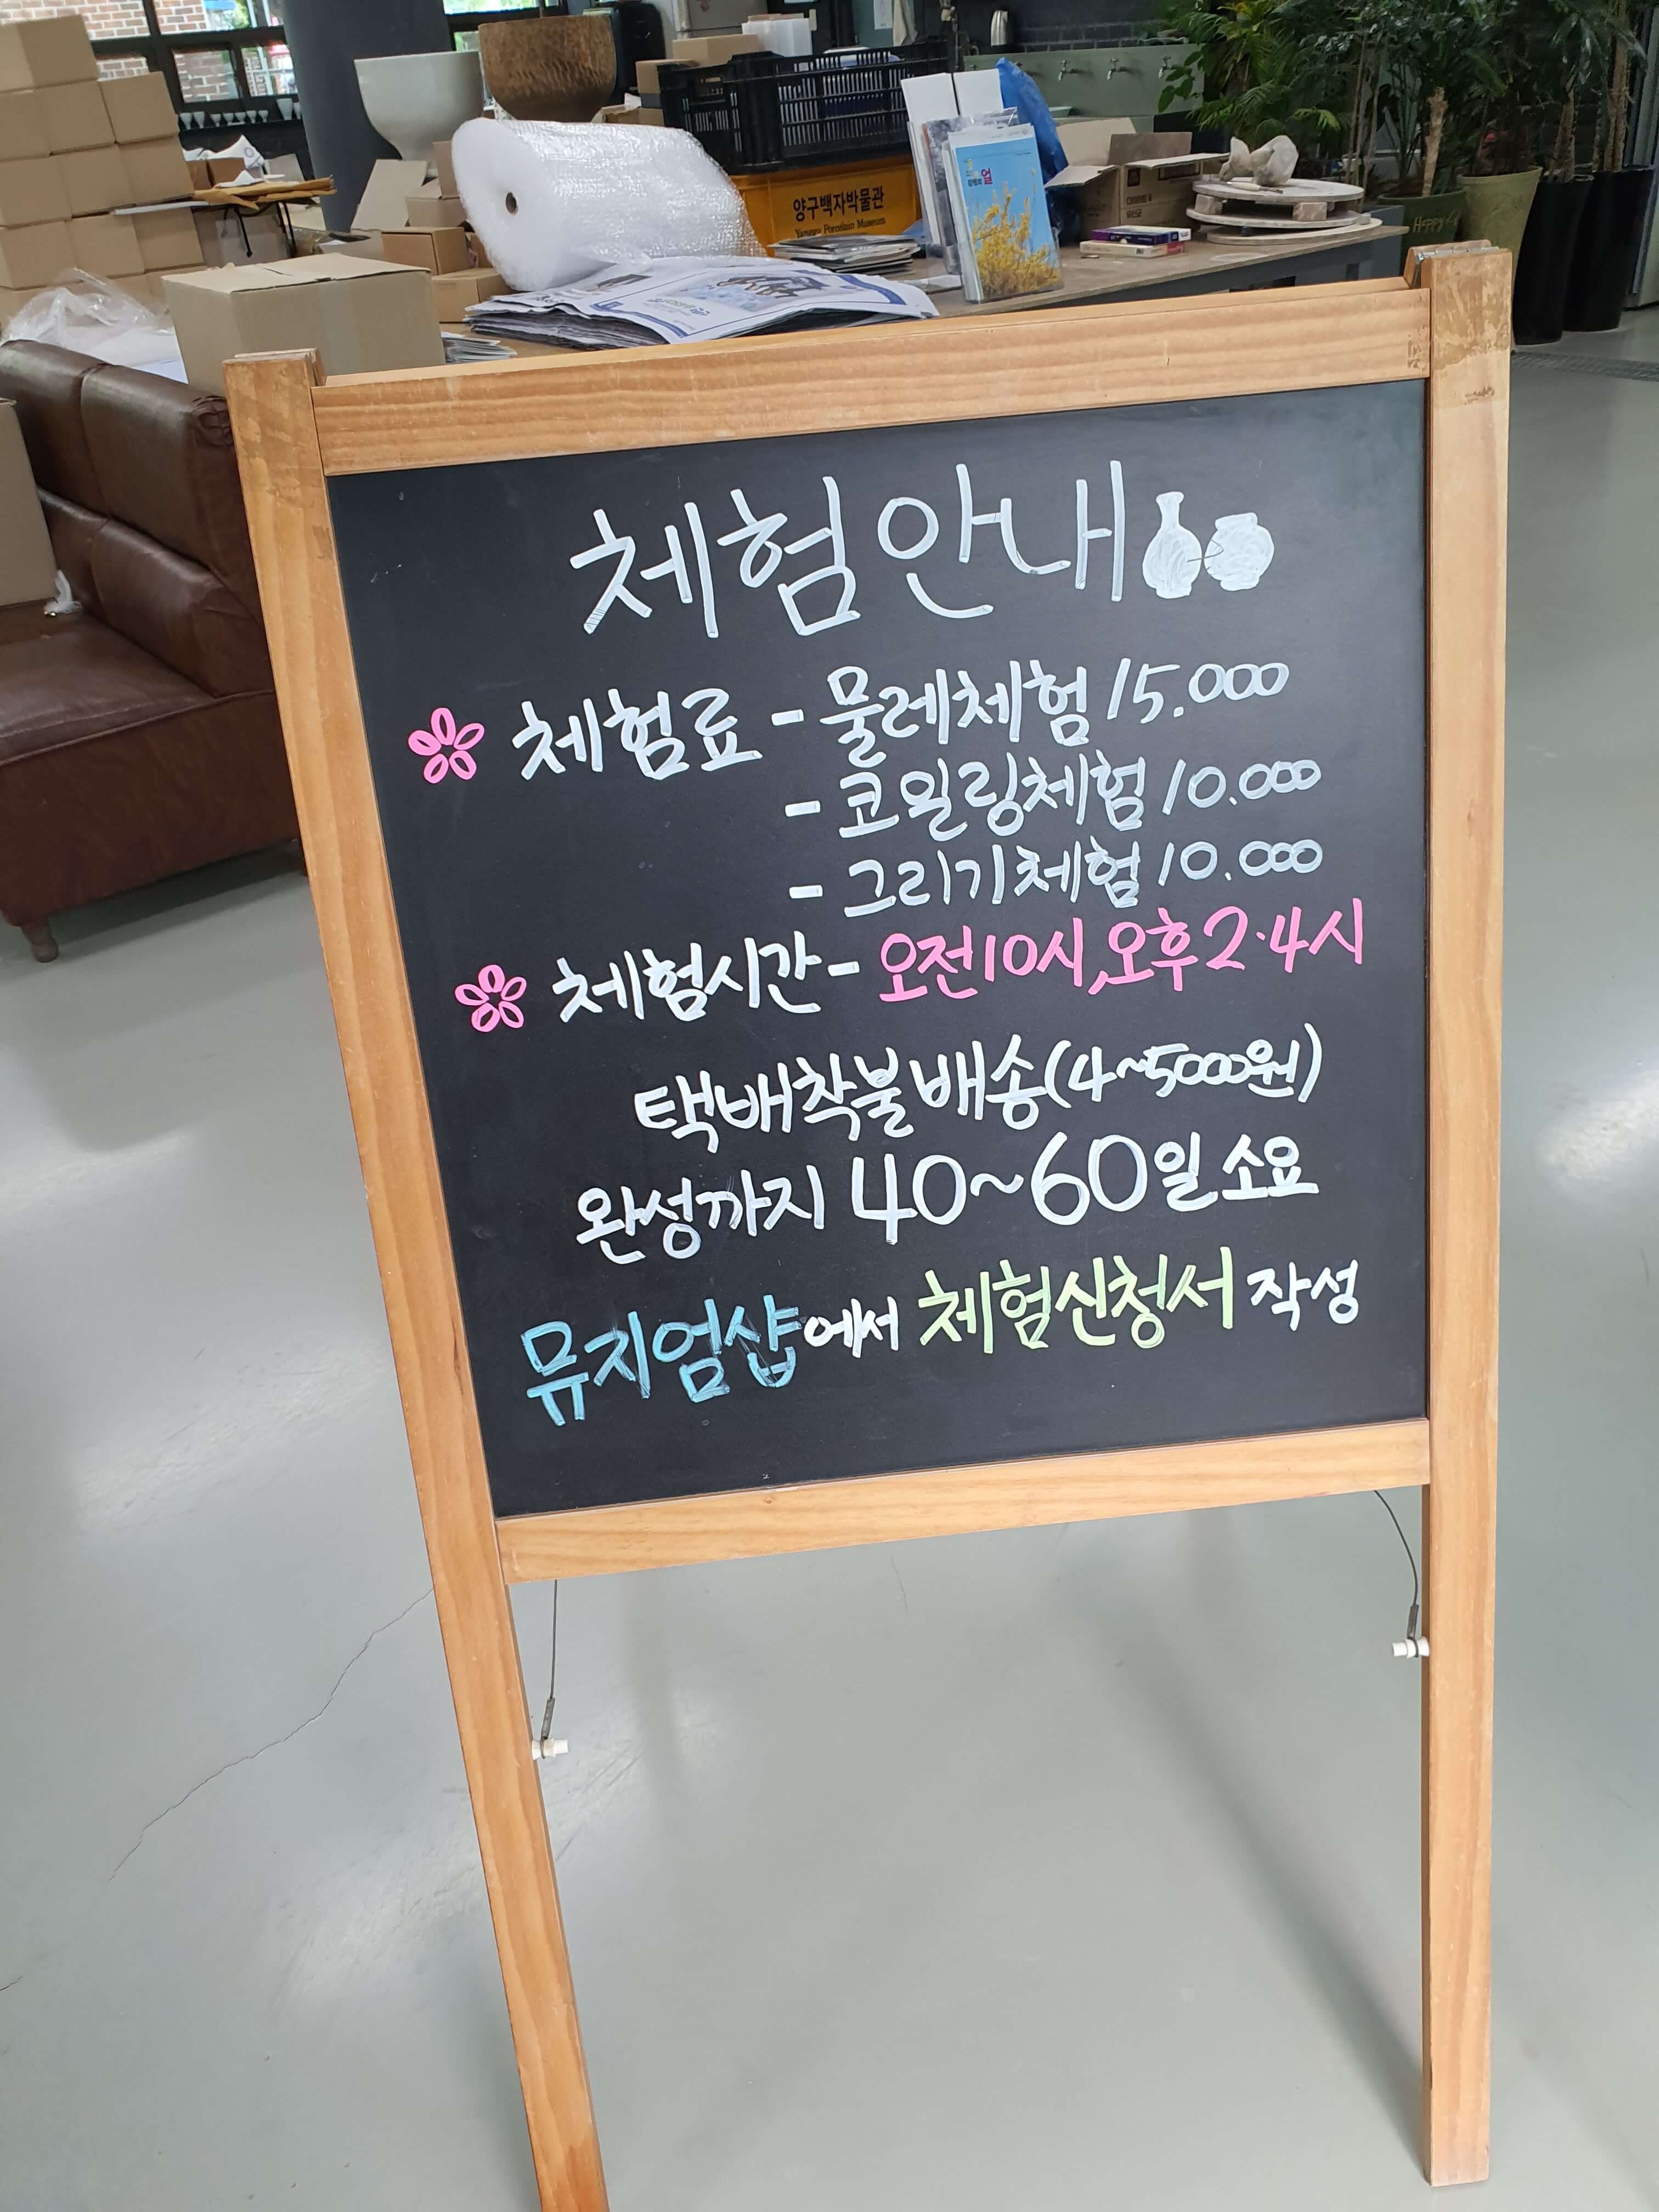 양구백자박물관
Yanggu Porcelain Museum
체험안내
체험료 - 물레체험 15.000
- 코일링체험 10.000
- 그리기체험 10.000
체험시간 - 오전10시, 오후2·4시
택배착불배송(4~5000원)
완성까지 40~60일 소요
뮤지엄샵에서 체험신청서 작성